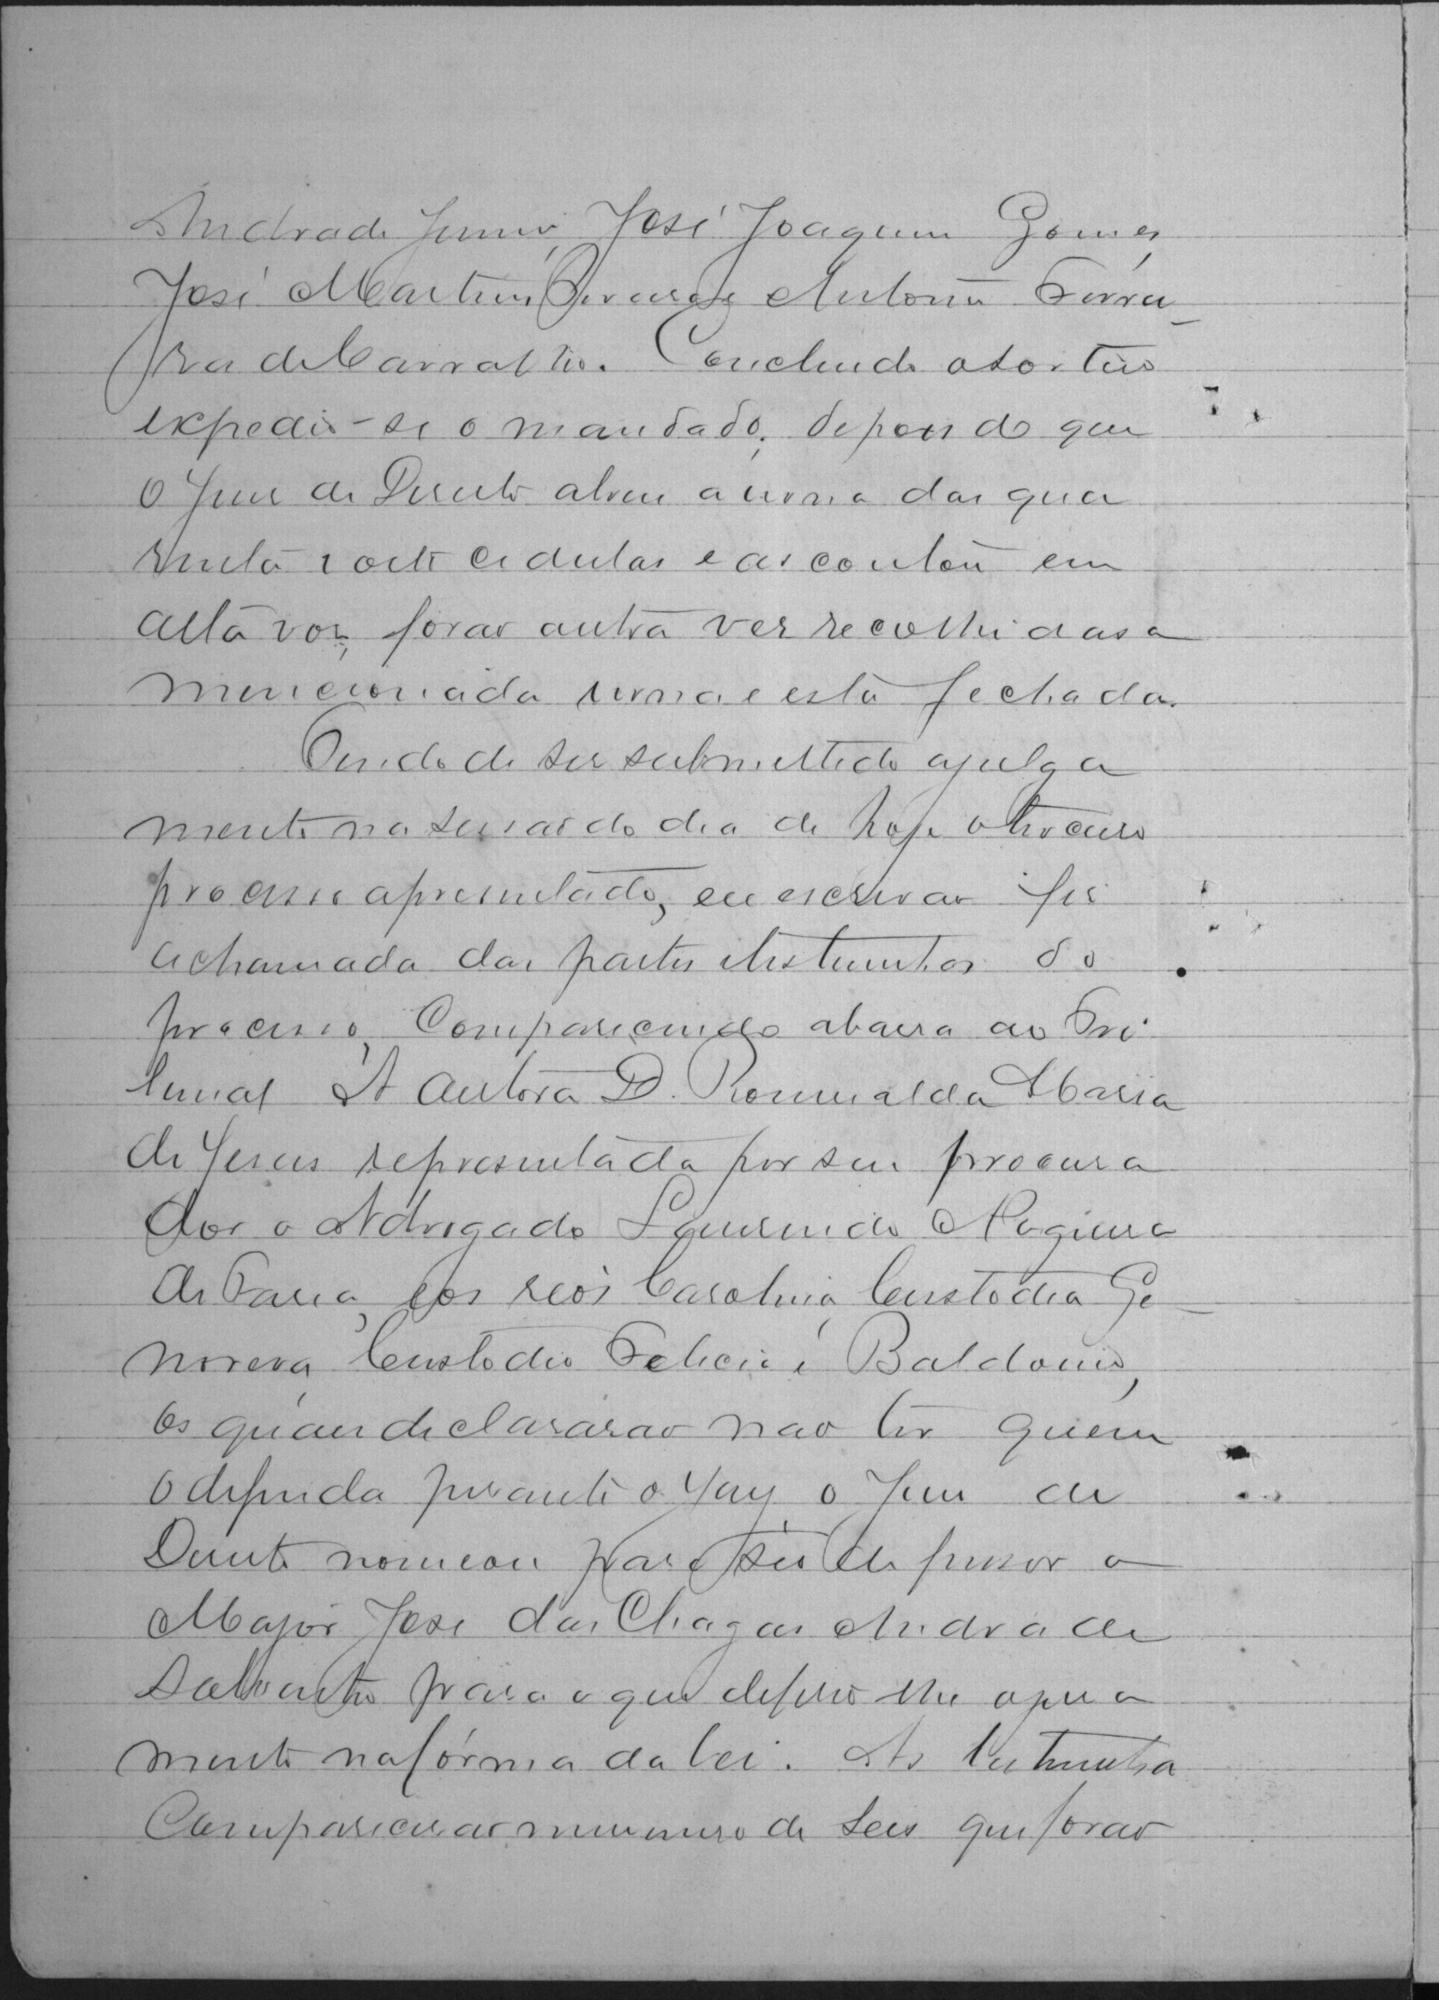 Andrade Junior, José Joaquim Gomes,
José Martins Pereira e Antonio Ferrei-
ra de Carvalho. Concluido o sorteio
expedio-se o mandado, depois do que
o Juiz de Direito abrio a urna das qua
renta i oito cedulas e as contou em
alta voz, forão outra vez recolhidas a
mencionada urna e esta fechada.
Tendo de ser submettido a julga
mento na sessão do dia de hoje o
processo apresentado, eu escrivão fiz
a chamada das partes e testemunhas do
processo, comparecendo a barra do Tri
bunal A autora D. Romualda Maria
de Jesus representada por seu procura
dor o Advogado Lourenço Nogueira
de Faria, e os reos Carolina, Custodia Ge-
noveva, Custodio Felicio i Baldoino,
os quaes declararão não ter quem
o defenda perante o Jury o Juiz de
Direito nomeou para seo defensor o
Major José das Chagas Andrade
Sobrinho para o que deferio lhe o jura
mento na fórma da lei. As testemunha
comparecerão numero de seis que forão